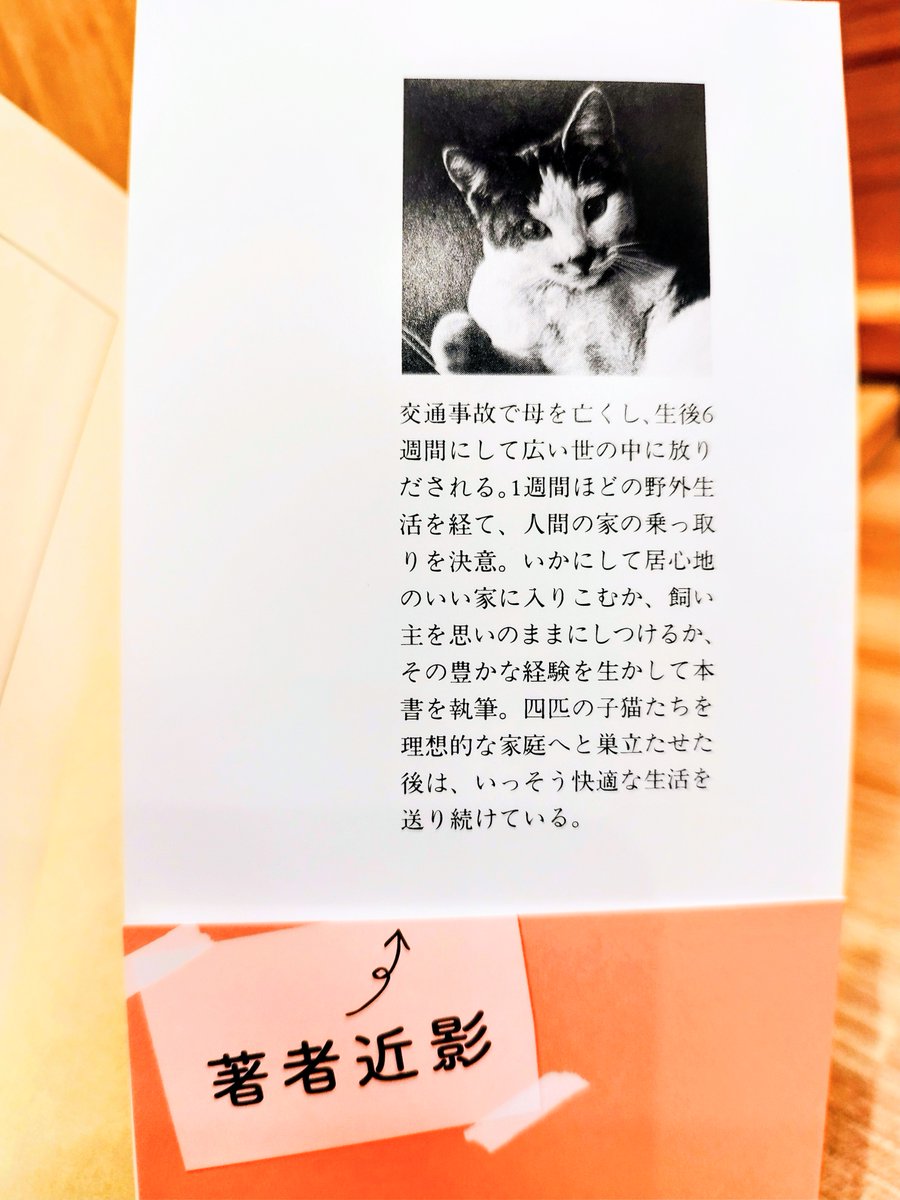 交通事故で母を亡くし、生後6
週間にして広い世の中に放り
だされる。1週間ほどの野外生
活を経て、人間の家の乗っ取
りを決意。いかにして居心地
のいい家に入りこむか、飼い
主を思いのままにしつけるか、
その豊かな経験を生かして本
書を執筆。四匹の子猫たちを
理想的な家庭へと巣立たせた
後は、いっそう快適な生活を
送り続けている。
著者近影